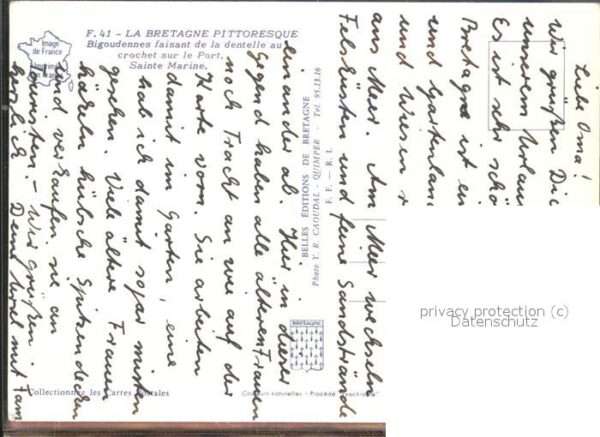 F. 41 - LA BRETAGNE PITTORESQUE
Bigoudennes faisant de la dentelle au
crochet sur le Port.
Sainte Marine.
Image
de France
BELLES ÉDITIONS DE BRETAGNE
Photo Y. R. CAOUDAL - QUIMPER - Tel. 95.13.16
F. F. - R. I.
BRETAGNE
Collectionnez les Cartes Postales
Couleurs naturelles - Procédé "Exactcolor"
Liebe Oma!
Wir grüßen Dic
unserem Urlau
Es ist sehr schö
Bretagne ist ei
und Gartenlan
und Wiesen
ans Meer. Am Meer wechseln
Felsküsten und feine Sandstrände
einander ab. Hier in dieser
Gegend haben alle älteren Frauen
noch Tracht an wie auf der
Karte vorn. Sie arbeiten
damit im Garten, eine
hab ich damit sogar misten
gesehen. Viele ältere Frauen
häkeln hübsche Spitzendecken
und verkaufen sie an
Touristen. - Wir grüßen
herzlich Deine mit Fam
privacy protection (c)
Datenschutz